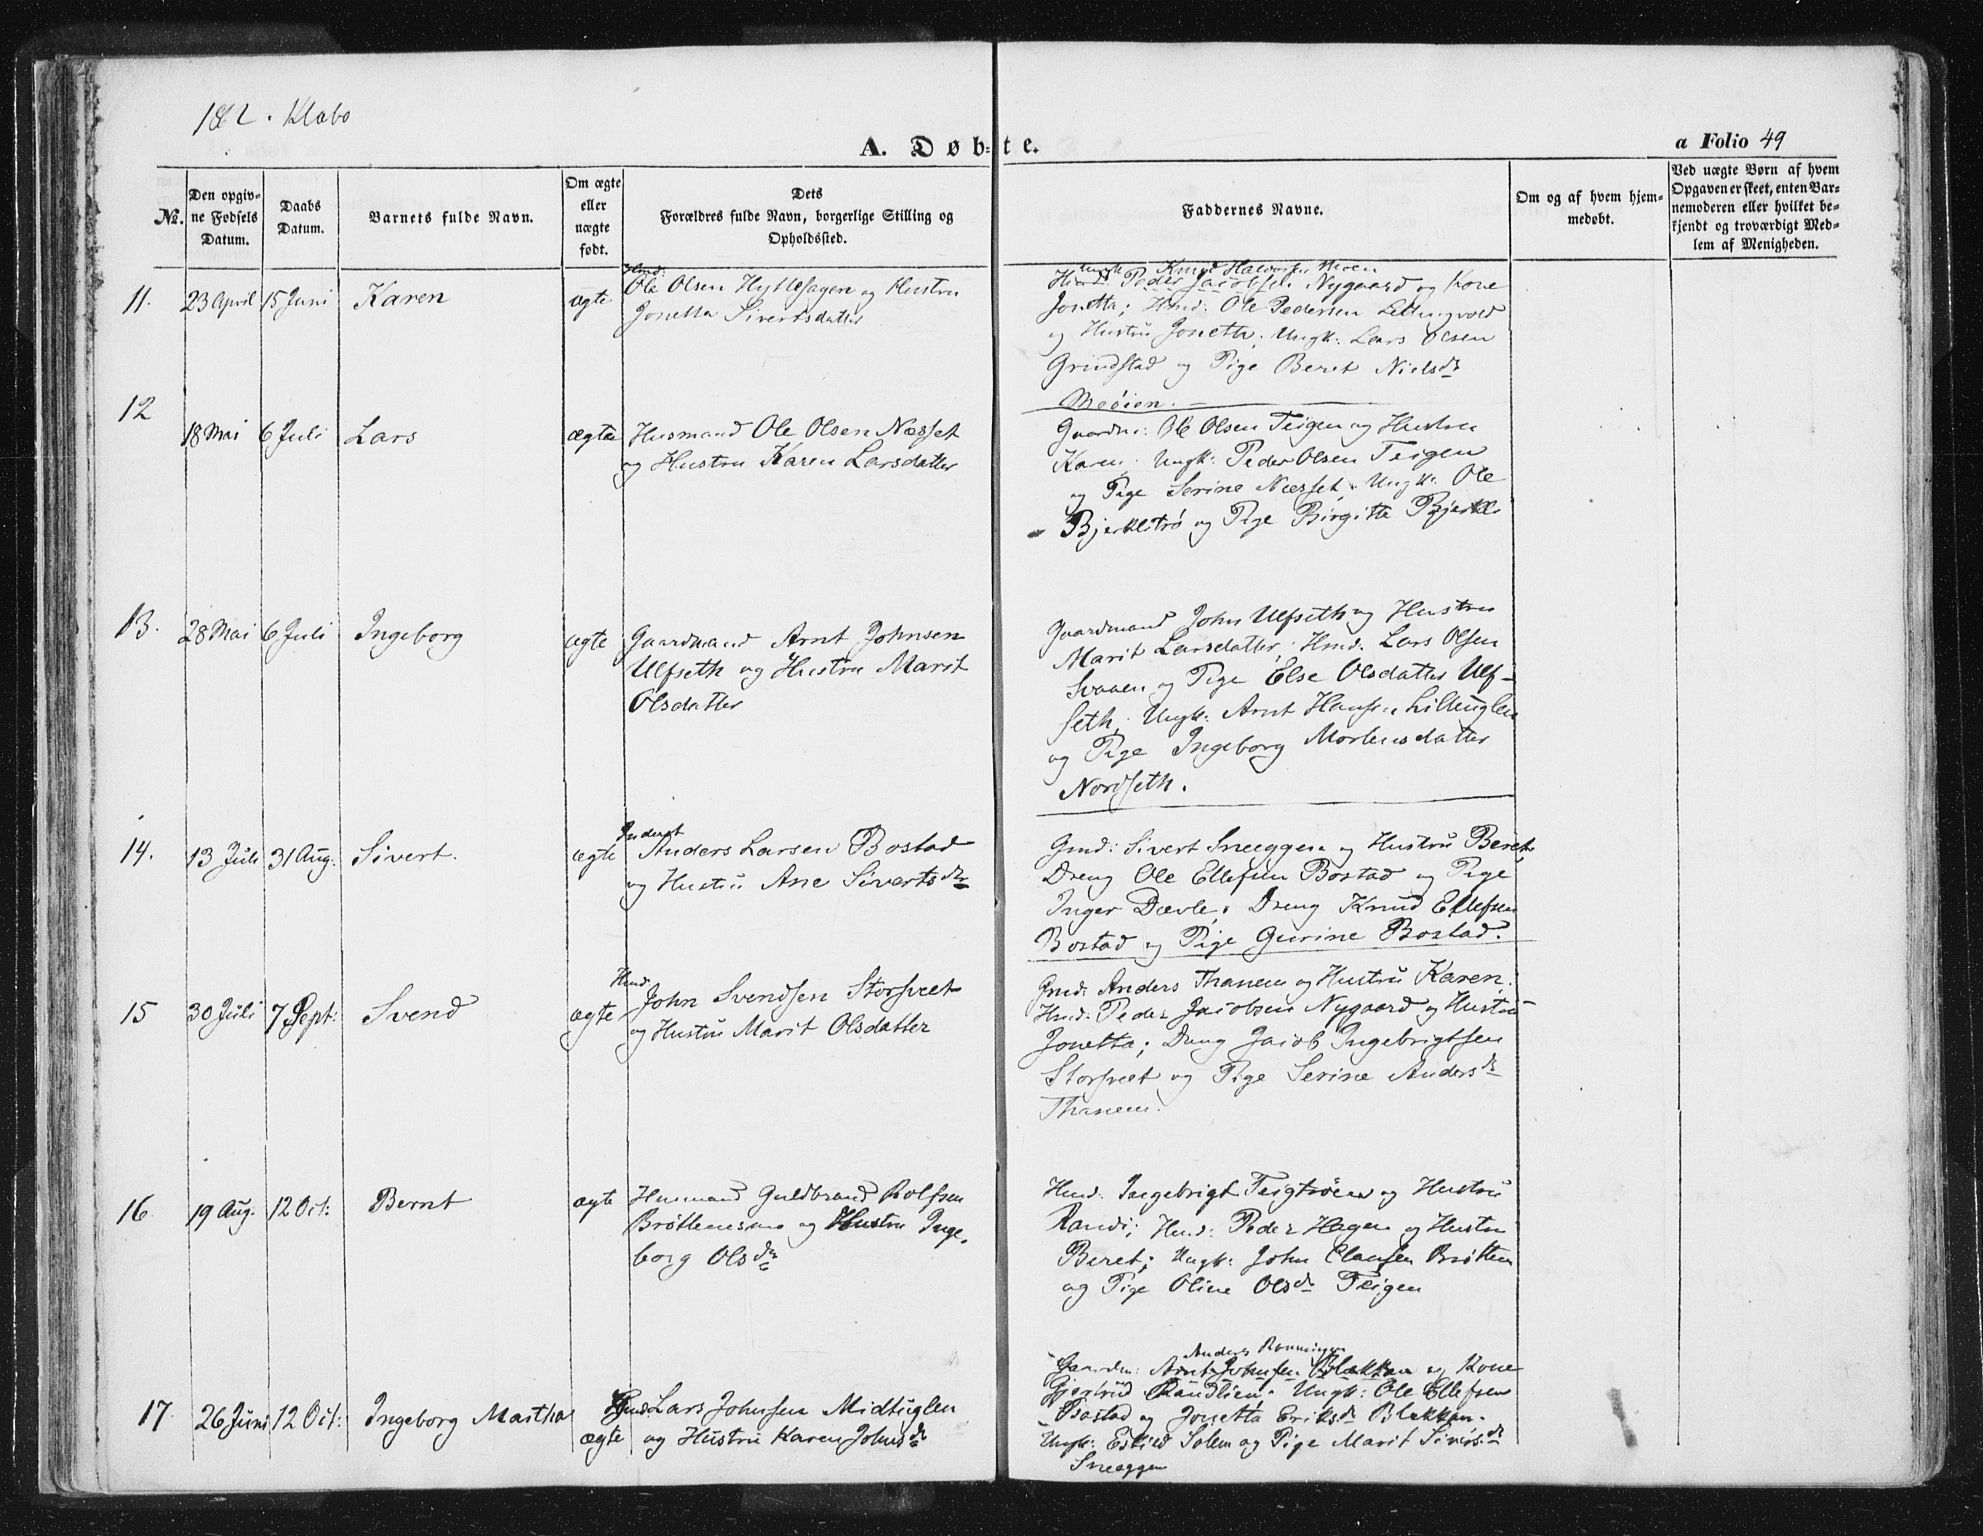 1862. Klæbo
A. Døbte.
a Folio 49
No.
Den opgivne Fødsels Datum.
Daabs Datum.
Barnets fulde Navn.
Om ægte eller uægte født.
Dets Forældres fulde Navn, borgerlige Stilling og Opholdssted.
Faddernes Navne.
Om og af hvem hjemmedøbt.
Ved uægte Børn af hvem Opgaven er skeet, enten Barnemoderen eller hvilket bekjendt og troværdigt Medlem af Menigheden.
11. 23 April 15 Juni Karen ægte
Hmd:
Ole Olsen Hyttehagen og Hustru
Jonetta Sivertsdatter
Knud Halvorsen Moen
Peder Jacobsen Nygaard og Kone
Jonetta; Hmd: Ole Pedersen
og Hustru Jonetta; Ungk: Lars Olsen
Grindstad og Pige Beret Nielsdr
12
18 Mai 6 Juli Lars ægte
Husmand Ole Olsen Næsset
og Hustru Karen Larsdatter
Gaardm: Ole Olsen Teigen og Hustru
Karen; Ungk: Peder Olsen Teigen
og Pige Serine Næsset; Ungk: Ole
Bjerklitrø og Pige Birgitte
13. 28 Mai 6 Juli Ingeborg ægte
Gaardmand Arnt Johnsen
Ulfseth og Hustru Marit
Olsdatter
Gaardmand John Ulfseth og Hustru
Marit Larsdatter; Hmd: Lars Olsen
Svaaen og Pige Else Olsdatter Ulf-
seth; Ungk: Arnt Hansen Lilleuglen
og Pige Ingeborg Mortensdatter
Nordseth.
14. 13 Juli 31 Aug. Sivert. ægte
Inderst
Anders Larsen Bostad
og Hustru Ane Sivertsdr
Gmd: Sivert Sneeggen og Hustru Beret,
Dreng Ole Ellefsen Bostad og Pige
Inger Dævle; Dreng Knud Ellefsen
Bostad og Pige Gurine Bostad.
15 30 Juli 7 Sept: Svend ægte
Hmd
John Svendsen Storsveet
og Hustru Marit Olsdatter
Gmd: Anders Thanem og Hustru Karen;
Hmd: Peder Jacobsen Nygaard og Hustru
Jonetta; Dreng Jacob Ingebrigtsen
Storsveet og Pige Serine Andersdr
Thanem.
16 19 Aug. 12 Oct: Bernt ægte
Husmand Guldbrand Rolfsen
og Hustru Inge-
borg Olsdr
Hmd: Ingebrigt Teigtrøen og Hustru
Randi; Hmd: Peder Hagen og Hustru
Beret; Ungk: John Clausen Brøttem
og Pige Oline Olsdr Teigen
17 26 Juni 12 Oct: Ingeborg Martha ægte
Gmd: Lars Johnsen Midtuglen
og Hustru Karen Johnsdr
Anders Rønningen
Gaardm: Arnt Johnsen Blekkan og Kone
Gjertrud Randlien; Ungk: Ole Ellefsen
Bostad og Jonetta Eriksdr Blekkan.
Ungk: Eskild Solem og Pige Marit Siversdr
Sneeggen